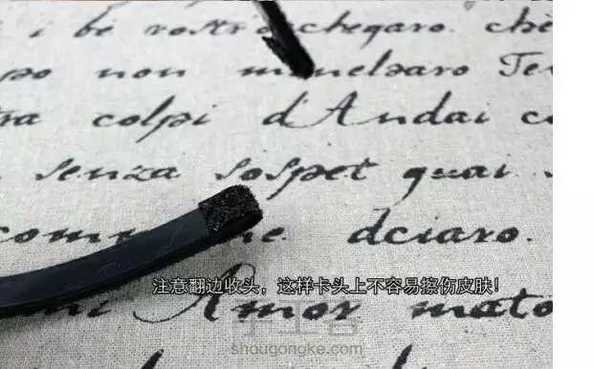 i be rostro chegaro. chè
po non minelsaro Te
ra colpi d'Andai co
senza sospet quai
com e. dciaro.
注意翻边收头，这样卡头上不容易擦伤皮肤！
ni Amor mato
手工客
shougongke.com